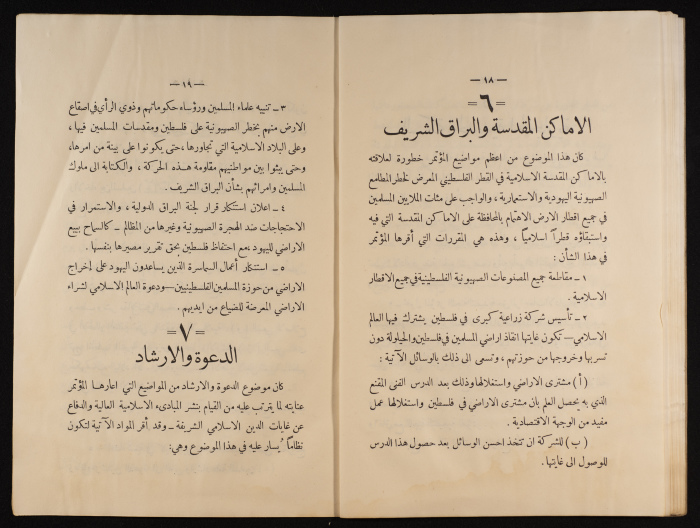 — ١٨ —
= ٦ =
الاماكن المقدسة والبراق الشريف
كان هذا الموضوع من اعظم مواضيع المؤتمر خطورة لعلاقته
بالاماكن المقدسة الاسلامية في القطر الفلسطيني المعرض لخطر المطامع
الصهيونية اليهودية والاستعمارية ، والواجب على مئات الملايين المسلمين
في جميع اقطار الارض الاهتمام بالمحافظة على الاماكن المقدسة التي فيه
واستبقاؤه قطراً اسلامياً ، وهذه هي المقررات التي أقرها المؤتمر
في هذا الشأن :
١ – مقاطعة جميع المصنوعات الصهيونية الفلسطينية في جميع الاقطار
الاسلامية .
٢ – تأسيس شركة زراعية كبرى في فلسطين يشترك فيها العالم
الاسلامي – تكون غايتها انقاذ اراضي المسلمين في فلسطين والحيلولة دون
تسربها وخروجها من حوزتهم ، وتسعى الى ذلك بالوسائل الآتية :
( أ ) مشترى الاراضي واستغلالها وذلك بعد الدرس الفني المقنع
الذي به يحصل العلم بان مشترى الاراضي في فلسطين واستغلالها عمل
مفيد من الوجهة الاقتصادية .
( ب ) للشركة ان تتخذ احسن الوسائل بعد حصول هذا الدرس
للوصول الى غايتها .
— ١٩ —
٣ – تنبيه علماء المسلمين ورؤساء حكوماتهم وذوي الرأي في اصقاع
الارض منهم بخطر الصهيونية على فلسطين ومقدسات المسلمين فيها ،
وعلى البلاد الاسلامية التي تجاورها ، حتى يكونوا على بينة من امرها ،
وحتى يبثوا بين مواطنيهم مقاومة هذه الحركة ، والكتابة الى ملوك
المسلمين وامرائهم بشأن البراق الشريف .
٤ – اعلان استنكار قرار لجنة البراق الدولية ، والاستمرار في
الاحتجاجات ضد الهجرة الصهيونية وغيرها من المظالم – كالسماح ببيع
الاراضي لليهود ، مع احتفاظ فلسطين بحق تقرير مصيرها بنفسها .
٥ – استنكار أعمال السماسرة الذين يساعدون اليهود على إخراج
الاراضي من حوزة المسلمين الفلسطينيين – ودعوة العالم الاسلامي لشراء
الاراضي المعرضة للضياع من ايديهم .
= ٧ =
الدعوة والارشاد
كان موضوع الدعوة والارشاد من المواضيع التي اعارها المؤتمر
عنايته لما يترتب عليه من القيام بنشر المبادىء الاسلامية العالية والدفاع
عن غايات الدين الاسلامي الشريفة – وقد أقر المواد الآتية لتكون
نظاماً يُسار عليه في هذا الموضوع وهي :